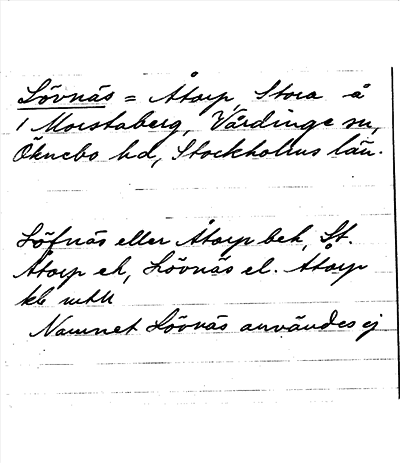 Lövnäs = Åtorp, Stora å
1 Morstaberg, Vårdinge sn,
Öknebo hd, Stockholms län.
Löfnäs eller Åtorp bek, St.
Åtorp ek, Lövnäs el. Åtorp
Namnet Lövnäs användes ej